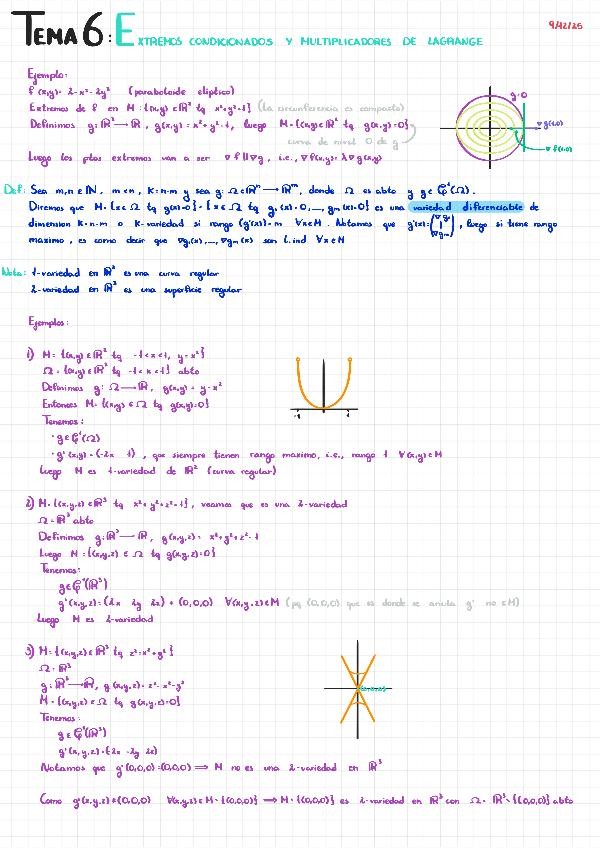 TEMA 6: EXTREMOS CONDICIONADOS Y MULTIPLICADORES DE LAGRANGE
9/12/25
Ejemplo:
f(x,y)= 2-x²-2y² (paraboloide elíptico)
Extremos de f en M={(x,y)∈ℝ² tq x²+y²=1} (la circunferencia es compacta)
Definimos g:ℝ²→ℝ, g(x,y)=x²+y²-1, luego M={(x,y)∈ℝ² tq g(x,y)=0}
curva de nivel 0 de g
Luego los ptos extremos van a ser ∇f∥∇g, i.e., ∇f(x,y)=λ∇g(x,y)
g=0
∇g(1,0)
∇f(1,0)
Def: Sea m,n∈ℕ, m<n, K=n-m y sea g:Ω⊆ℝⁿ→ℝᵐ, donde Ω es abto y g∈𝒞¹(Ω).
Diremos que M={x∈Ω tq g(x)=0}={x∈Ω tq g₁(x)=0,...,gₘ(x)=0} es una variedad diferenciable de
dimension K=n-m o K-variedad si rango(g'(x))=m ∀x∈M. Notamos que g'(x)=(∇g₁ ⋮ ∇gₘ), luego si tiene rango
maximo, es como decir que ∇g₁(x),...,∇gₘ(x) son l.ind ∀x∈M
Nota: 1-variedad en ℝ² es una curva regular
2-variedad en ℝ³ es una superficie regular
Ejemplos:
1) M={(x,y)∈ℝ² tq -1<x<1, y=x²}
Ω={(x,y)∈ℝ² tq -1<x<1} abto
Definimos g:Ω→ℝ, g(x,y)=y-x²
Entonces M={(x,y)∈Ω tq g(x,y)=0}
Tenemos:
· g∈𝒞¹(Ω)
· g'(x,y)=(-2x 1), que siempre tienen rango maximo, i.e., rango 1 ∀(x,y)∈M
Luego M es 1-variedad de ℝ² (curva regular)
-1 1
2) M={(x,y,z)∈ℝ³ tq x²+y²+z²=1}, veamos que es una 2-variedad
Ω=ℝ³ abto
Definimos g:ℝ³→ℝ, g(x,y,z)=x²+y²+z²-1
Luego M={(x,y,z)∈Ω tq g(x,y,z)=0}
Tenemos:
g∈𝒞¹(ℝ³)
g'(x,y,z)=(2x 2y 2z)≠(0,0,0) ∀(x,y,z)∈M (pq (0,0,0) que es donde se anula g' no ∈M)
Luego M es 2-variedad
3) M={(x,y,z)∈ℝ³ tq z²=x²+y²}
Ω=ℝ³
g:ℝ³→ℝ, g(x,y,z)=z²-x²-y²
M={(x,y,z)∈Ω tq g(x,y,z)=0}
Tenemos:
g∈𝒞¹(ℝ³)
g'(x,y,z)=(-2x -2y 2z)
Notamos que g'(0,0,0)=(0,0,0) ⟹ M no es una 2-variedad en ℝ³
Como g'(x,y,z)≠(0,0,0) ∀(x,y,z)∈M-{(0,0,0)} ⟹ M-{(0,0,0)} es 2-variedad en ℝ³ con Ω=ℝ³\{(0,0,0)} abto